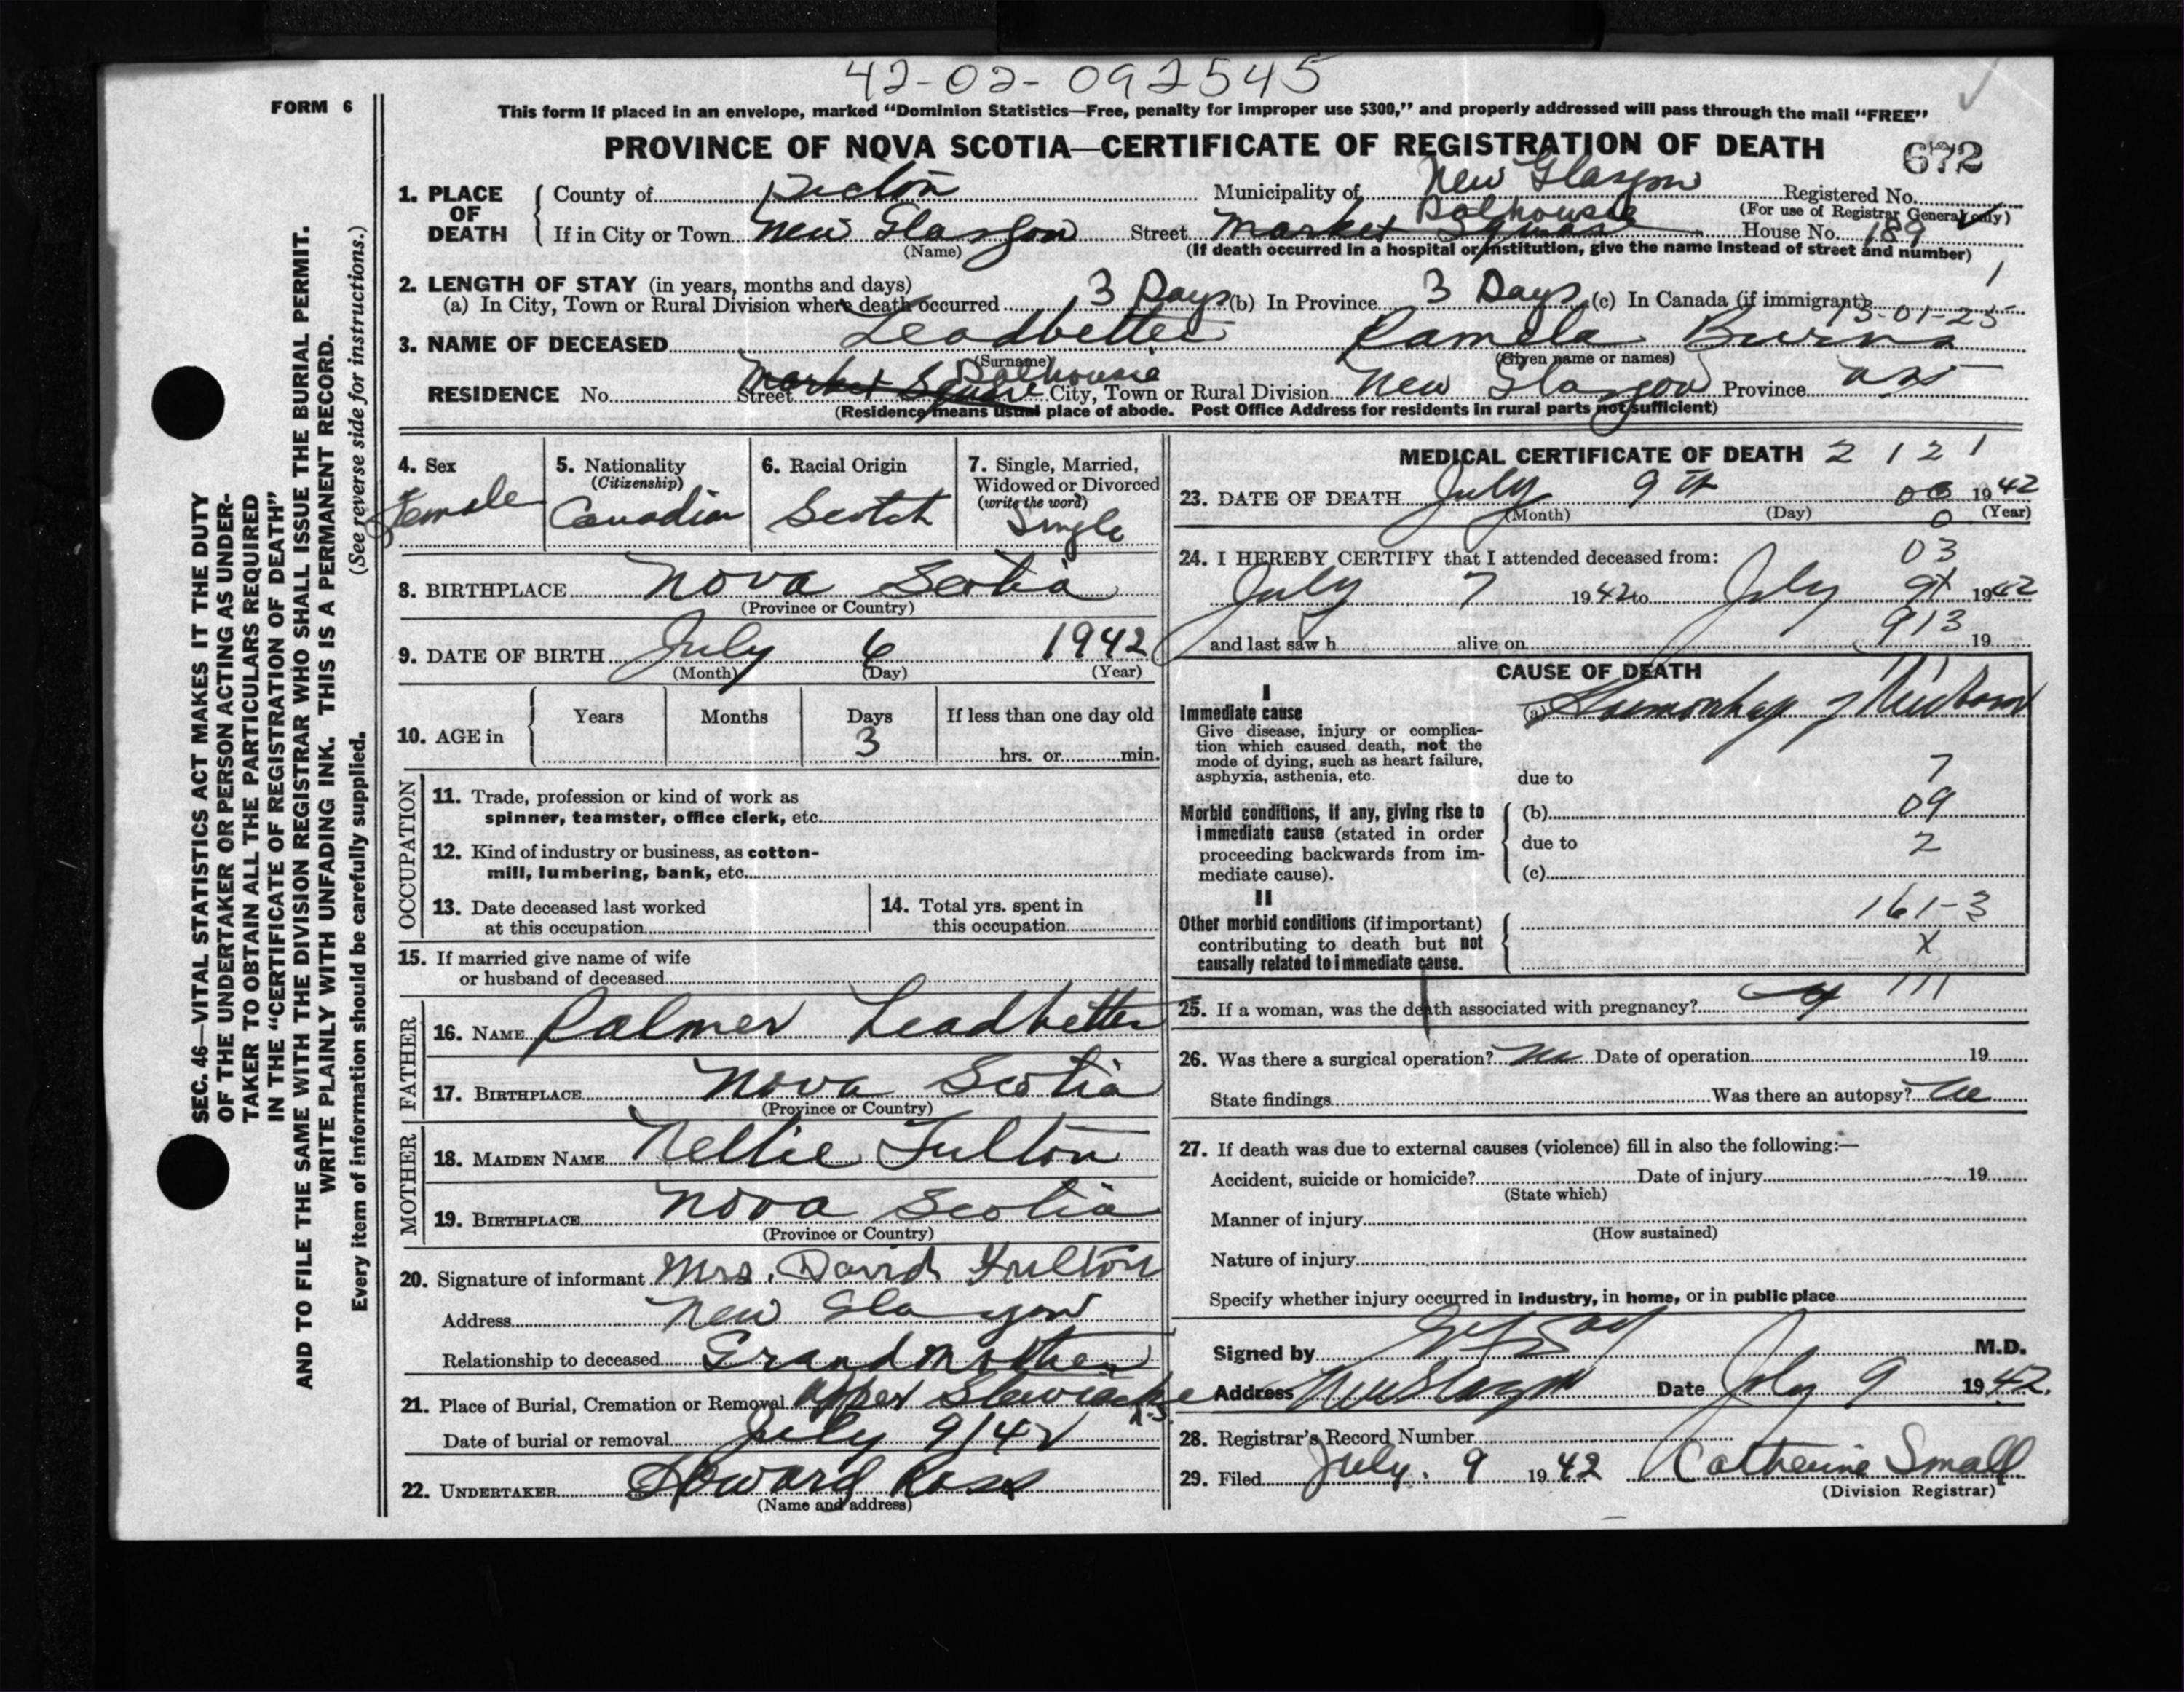 42-02-092545
FORM 6
This form if placed in an envelope, marked “Dominion Statistics—Free, penalty for improper use $300,” and properly addressed will pass through the mail “FREE”
PROVINCE OF NOVA SCOTIA—CERTIFICATE OF REGISTRATION OF DEATH
672
1. PLACE OF DEATH
County of Pictou Municipality of New Glasgow Registered No.
(For use of Registrar General only)
Dalhousie
If in City or Town New Glasgow Street Market Square House No. 189
(Name) (If death occurred in a hospital or institution, give the name instead of street and number)
2. LENGTH OF STAY (in years, months and days) 1
(a) In City, Town or Rural Division where death occurred 3 Days (b) In Province 3 Days (c) In Canada (if immigrant)
13-01-25
3. NAME OF DECEASED Leadbetter Pamela Burns
(Surname) (Given name or names)
Dalhousie
RESIDENCE No. Street Market Square City, Town or Rural Division New Glasgow Province N.S.
(Residence means usual place of abode. Post Office Address for residents in rural parts not sufficient)
4. Sex
Female
5. Nationality
(Citizenship)
Canadian
6. Racial Origin
Scotch
7. Single, Married,
Widowed or Divorced
(write the word)
Single
8. BIRTHPLACE Nova Scotia
(Province or Country)
9. DATE OF BIRTH July 6 1942
(Month) (Day) (Year)
10. AGE in
Years Months Days If less than one day old
3 hrs. or min.
OCCUPATION
11. Trade, profession or kind of work as
spinner, teamster, office clerk, etc.
12. Kind of industry or business, as cotton-
mill, lumbering, bank, etc.
13. Date deceased last worked
at this occupation
14. Total yrs. spent in
this occupation
15. If married give name of wife
or husband of deceased
FATHER
16. NAME Palmer Leadbetter
17. BIRTHPLACE Nova Scotia
(Province or Country)
MOTHER
18. MAIDEN NAME Nellie Fulton
19. BIRTHPLACE Nova Scotia
(Province or Country)
20. Signature of informant Mrs. David Fulton
Address New Glasgow
Relationship to deceased Grandmother
21. Place of Burial, Cremation or Removal Upper Stewiacke N.S.
Date of burial or removal July 9/42
22. UNDERTAKER Howard Ross
(Name and address)
MEDICAL CERTIFICATE OF DEATH 2 1 2 1
23. DATE OF DEATH July 9th 1942
(Month) (Day) (Year)
0
24. I HEREBY CERTIFY that I attended deceased from: 03
July 7 1942 to July 9th 1942
913
and last saw h alive on 19
CAUSE OF DEATH
I
Immediate cause
Give disease, injury or complica-
tion which caused death, not the
mode of dying, such as heart failure,
asphyxia, asthenia, etc.
(a) Haemorrhage of Newborn
due to 7
Morbid conditions, if any, giving rise to
immediate cause (stated in order
proceeding backwards from im-
mediate cause).
(b) 09
due to 2
(c)
II
Other morbid conditions (if important)
contributing to death but not
causally related to immediate cause.
161-3
X
25. If a woman, was the death associated with pregnancy? 111
26. Was there a surgical operation? No Date of operation 19
State findings Was there an autopsy? No
27. If death was due to external causes (violence) fill in also the following:—
Accident, suicide or homicide? Date of injury 19
(State which)
Manner of injury
(How sustained)
Nature of injury
Specify whether injury occurred in industry, in home, or in public place
Signed by M.D.
Address New Glasgow Date July 9 1942.
28. Registrar's Record Number
29. Filed July. 9 1942 Catherine Small
(Division Registrar)
SEC. 46—VITAL STATISTICS ACT MAKES IT THE DUTY
OF THE UNDERTAKER OR PERSON ACTING AS UNDER-
TAKER TO OBTAIN ALL THE PARTICULARS REQUIRED
IN THE “CERTIFICATE OF REGISTRATION OF DEATH”
AND TO FILE THE SAME WITH THE DIVISION REGISTRAR WHO SHALL ISSUE THE BURIAL PERMIT.
WRITE PLAINLY WITH UNFADING INK. THIS IS A PERMANENT RECORD.
Every item of information should be carefully supplied. (See reverse side for instructions.)